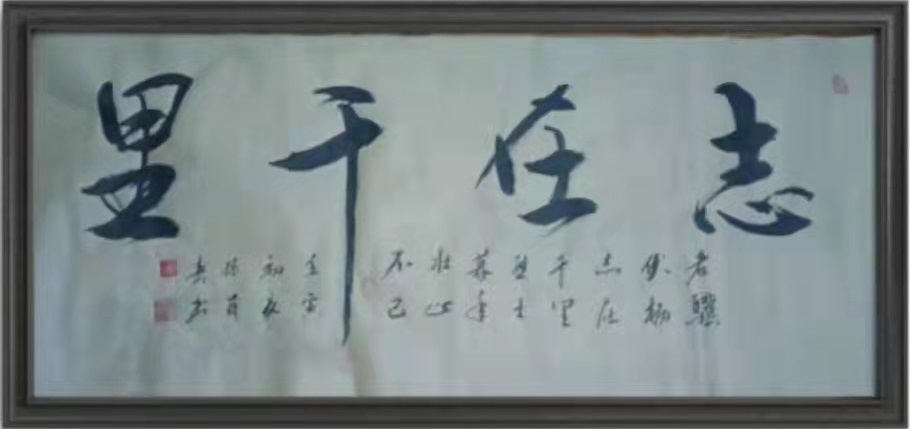 志在千里
老驥
伏枥
志在
千里
烈士
暮年
壮心
不已
壬寅
初秋
书